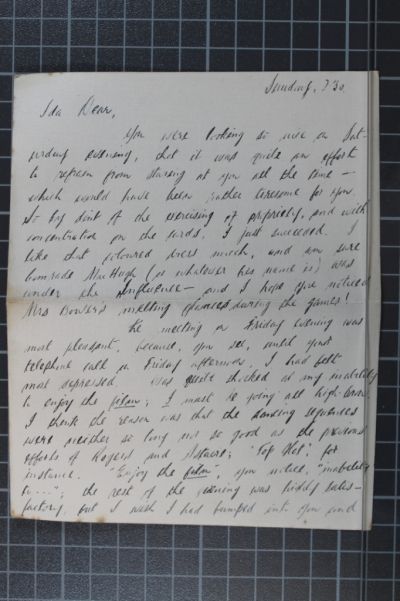 Sunday, 7.30
Ida Dear,
You were looking so nice on Sat-
urday evening, that it was quite an effort
to refrain from staring at you all the time —
which would have been rather tiresome for you.
So by dint of the exercising of propriety, and with
concentration on the cards, I just succeeded. I
like that coloured dress much, and am sure
Comrade MacHugh (or whatever his name is) was
under the influence — and I hope you noticed
Mrs Bowers melting glances during the games!
The meeting on Friday evening was
most pleasant, because, you see, until your
telephone call on Friday afternoon, I had felt
most depressed. Was quite shocked at my inability
to enjoy the film; I must be going all high-brow.
I think the reason was that the dancing sequences
were neither so long nor so good as the previous
efforts of Rogers and Astaire; "Top Hat", for
instance. "Enjoy the film", you notice, "inability
to ..."; the rest of the evening was highly satis-
factory, but I wish I had bumped into you and